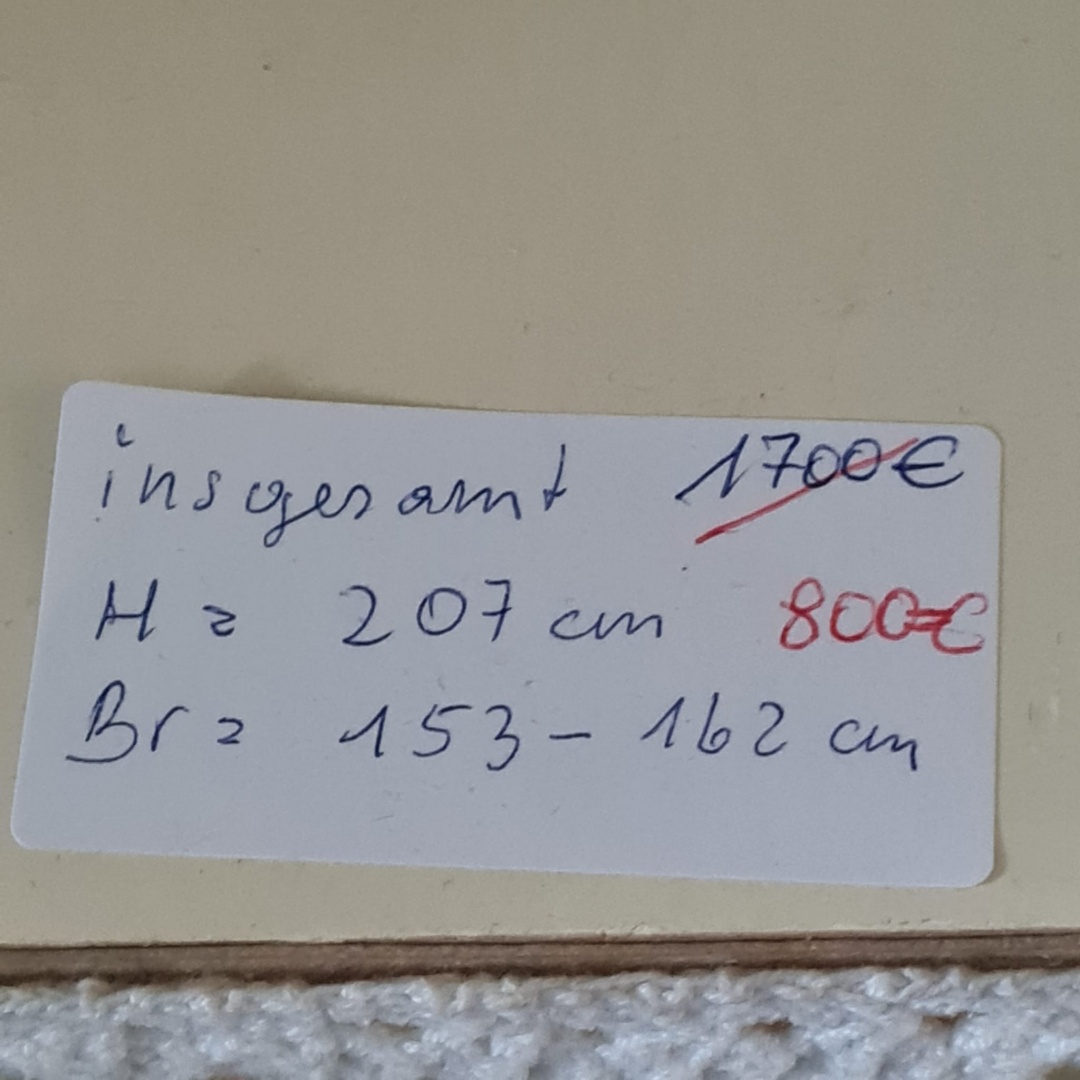 insgesamt 1700€
H = 207 cm 800€
Br = 153 - 162 cm